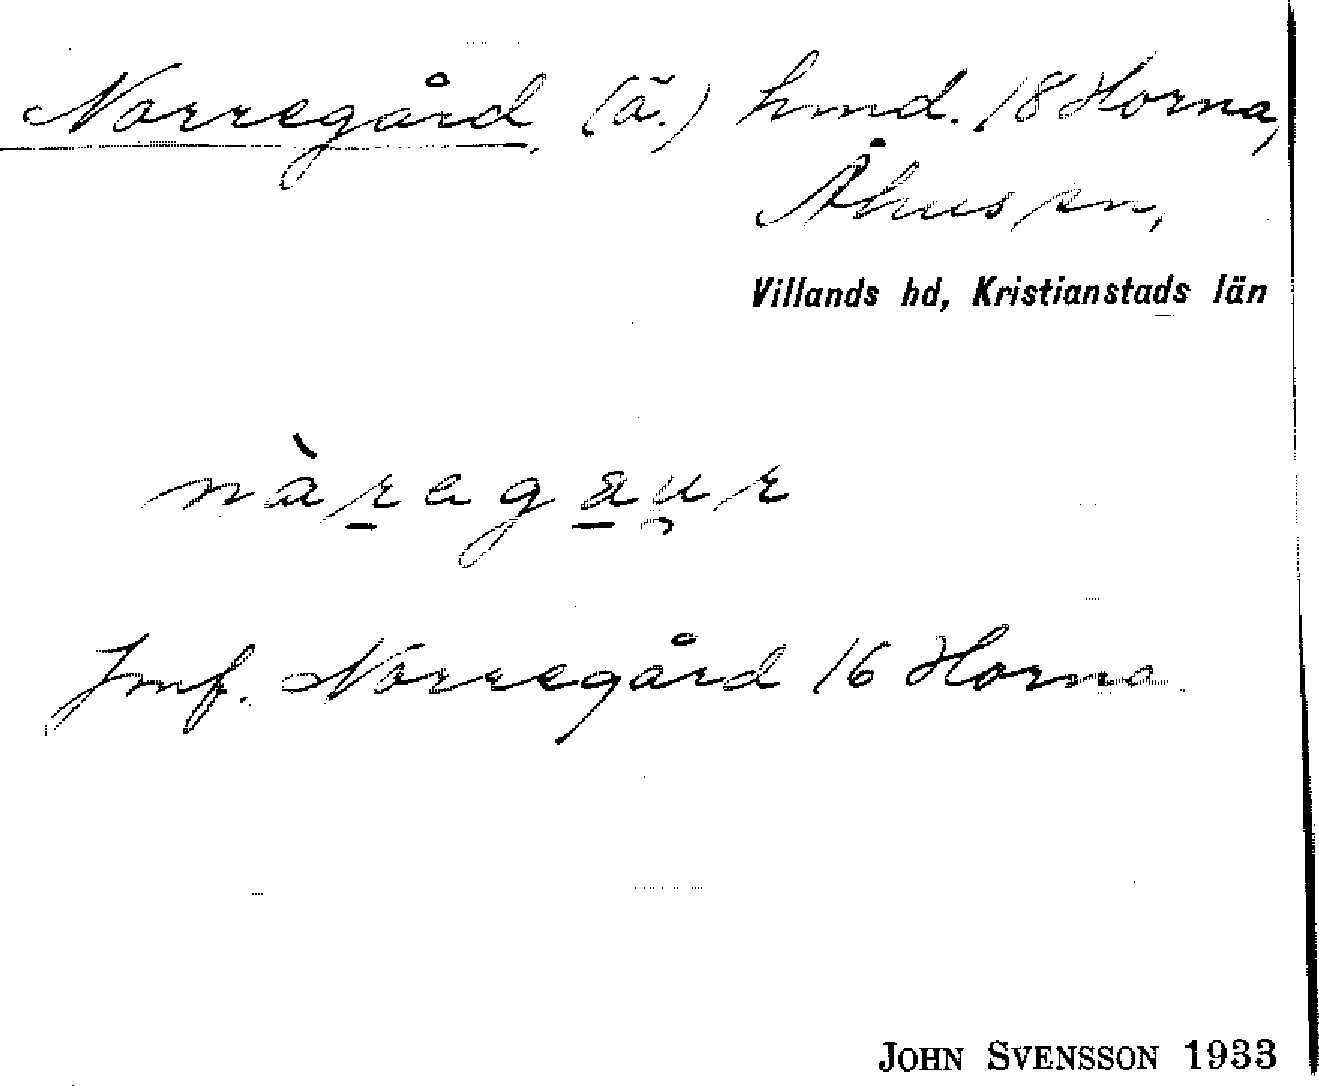 Norregård, (ä.) hmd. 18 Horna,
Åhus sn,
Villands hd, Kristianstads län
nàragau̯r
Jmf. Norregård 16 Horna.
JOHN SVENSSON 1933